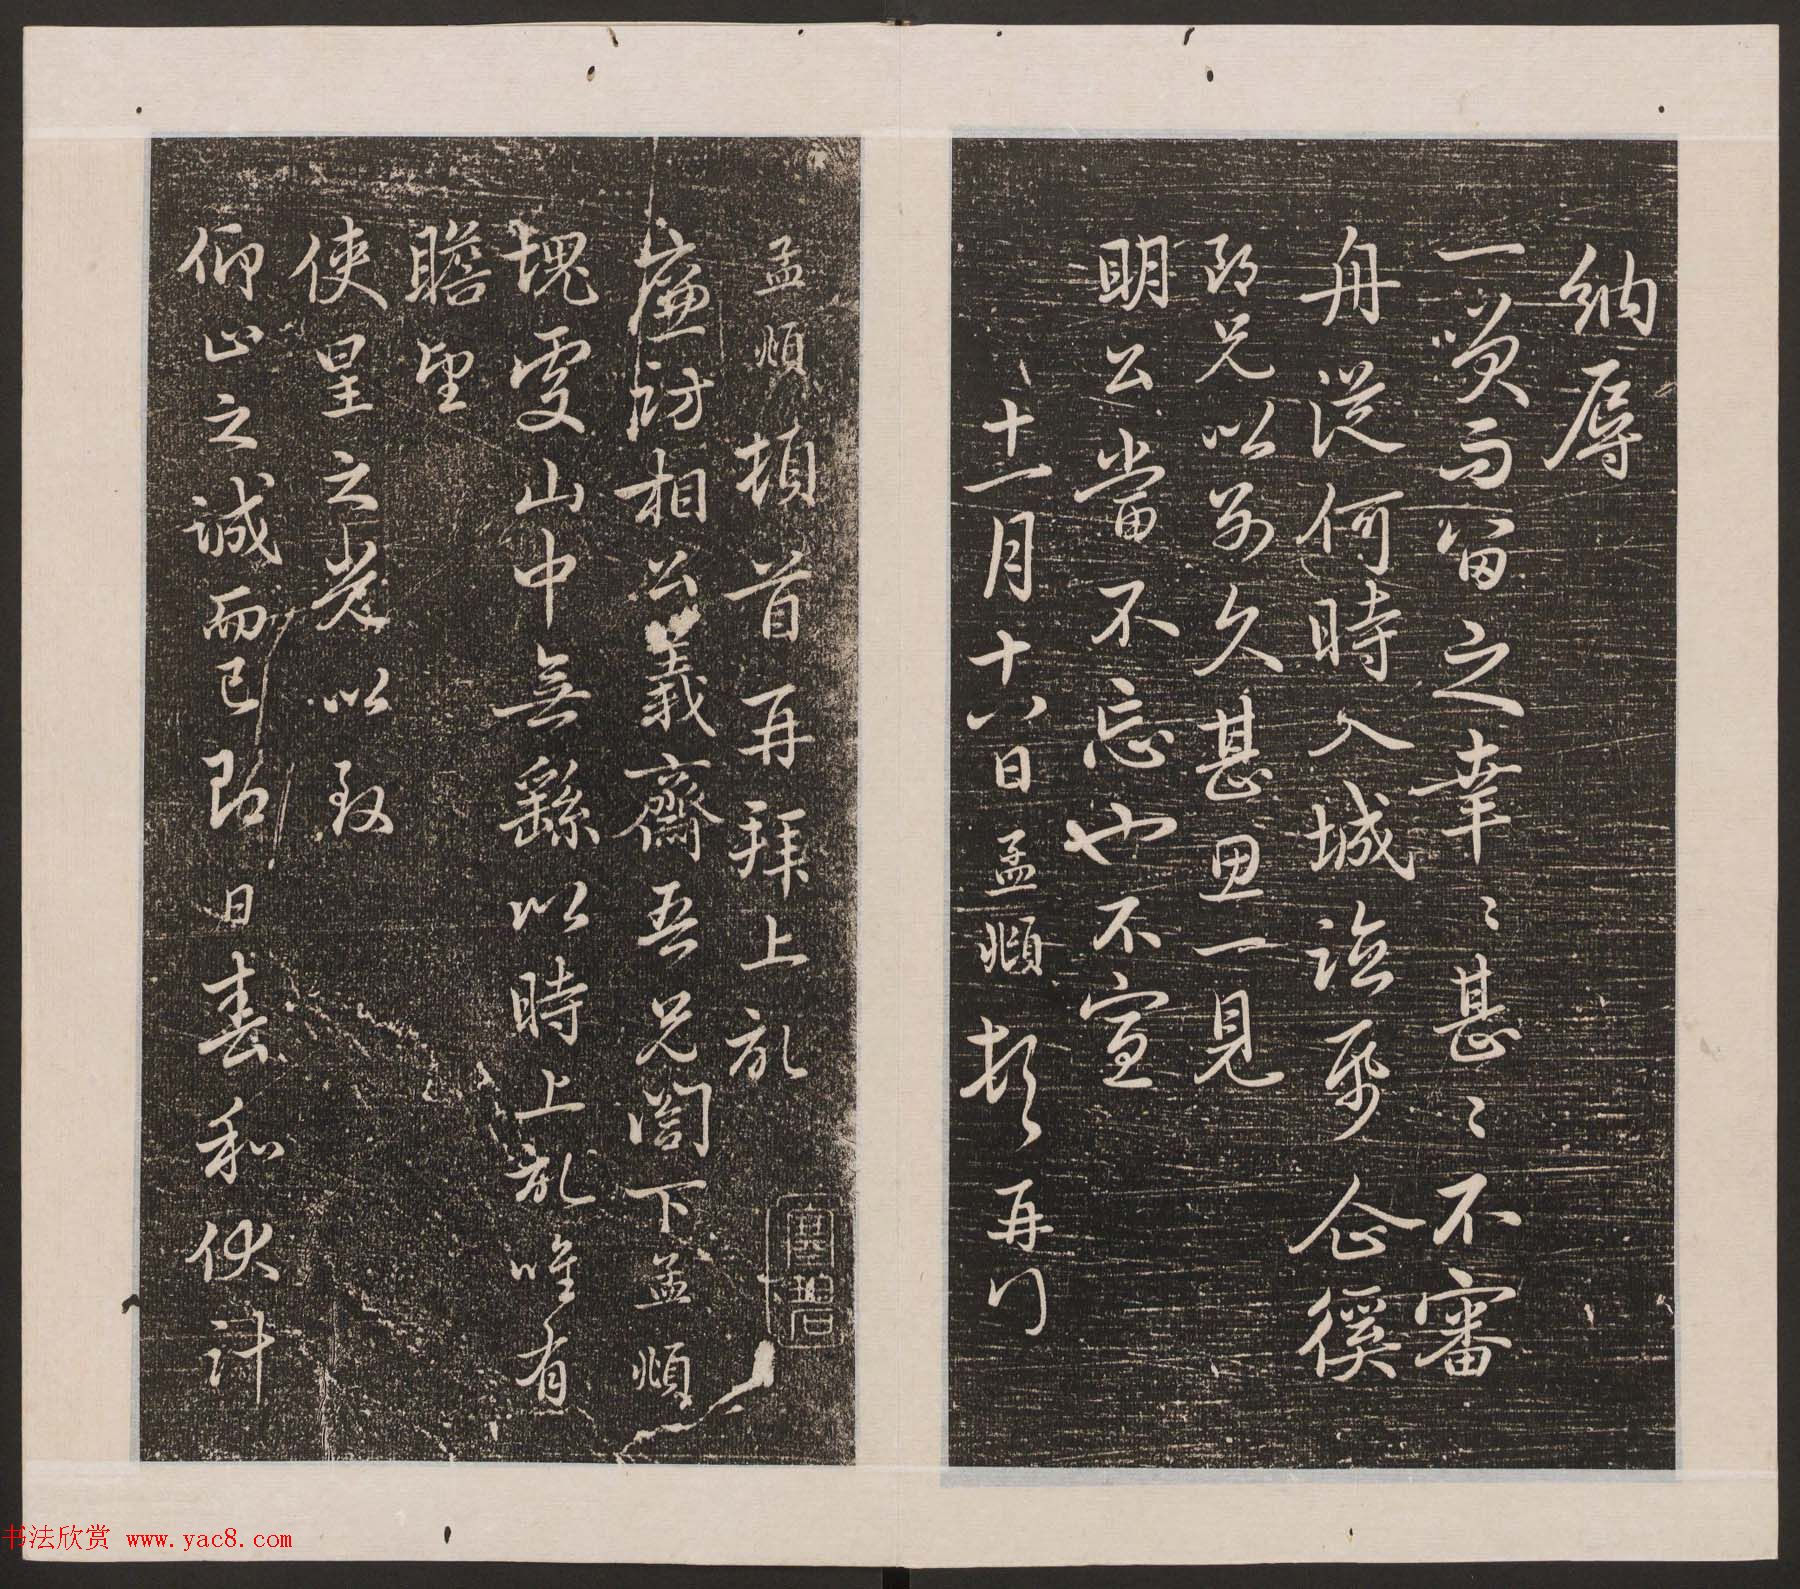 納辱
一笑而留之幸〻甚〻不審
舟從何時入城詣 企徯
郎兄以 久甚思一見
明公當不忘也不宣
十一月十六日孟頫頓首再
孟頫頓首再拜上記
廉訪相公義齋吾兄閤下孟頫
塊處山中無繇以時上記唯有
瞻望
使星之光以致
仰止之誠而已即日春和伏計
書法欣賞 www.yac8.com